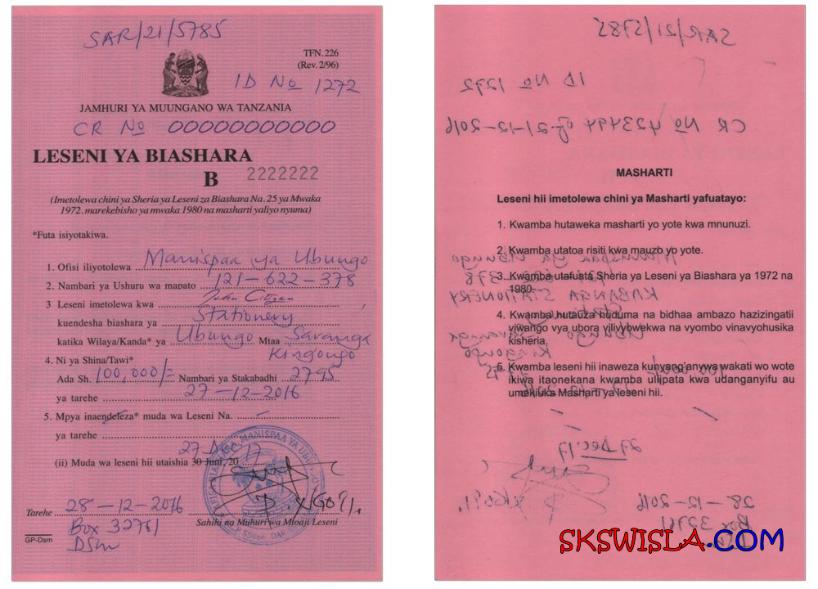 SAR/21/5785
TFN. 226
(Rev. 2/96)
ID No 1272
JAMHURI YA MUUNGANO WA TANZANIA
CR No 00000000000
LESENI YA BIASHARA
B 2222222
(Imetolewa chini ya Sheria ya Leseni za Biashara Na. 25 ya Mwaka
1972. marekebisho ya mwaka 1980 na masharti yaliyo nyuma)
*Futa isiyotakiwa.
1. Ofisi iliyotolewa Manispaa ya Ubungo
2. Nambari ya Ushuru wa mapato 121-622-378
3 Leseni imetolewa kwa
kuendesha biashara ya Stationery
katika Wilaya/Kanda* ya Ubungo Mtaa Saranga
Kingongo
4. Ni ya Shina/Tawi*
Ada Sh. 100,000/= Nambari ya Stakabadhi 2795
ya tarehe 27-12-2016
5. Mpya inaendeleza* muda wa Leseni Na. -
ya tarehe -
27 Dec 17
(ii) Muda wa leseni hii utaishia 30 Juni, 20
Tarehe 28-12-2016
Sahihi na Muhuri wa Mtoaji Leseni
Box 32761
DSm
GP-Dsm
SAR/21/5785
ID No 1272
CR No 423494 of 21-12-2016
MASHARTI
Leseni hii imetolewa chini ya Masharti yafuatayo:
1. Kwamba hutaweka masharti yo yote kwa mnunuzi.
2. Kwamba utatoa risiti kwa mauzo yo yote.
Manispaa ya Ubungo
3. Kwamba utafuata Sheria ya Leseni ya Biashara ya 1972 na
1980.
KABANGA STATIONERY
4. Kwamba hutauza huduma na bidhaa ambazo hazizingatii
viwango vya ubora vilivyowekwa na vyombo vinavyohusika
kisheria.
Ubungo Saranga
Kingongo
5. Kwamba leseni hii inaweza kunyang'anywa wakati wo wote
ikiwa itaonekana kwamba ulijipata kwa udanganyifu au
umekiuka Masharti ya leseni hii.
27 Dec. 17
28-12-2016
Box 32761
SKSWISLA.COM